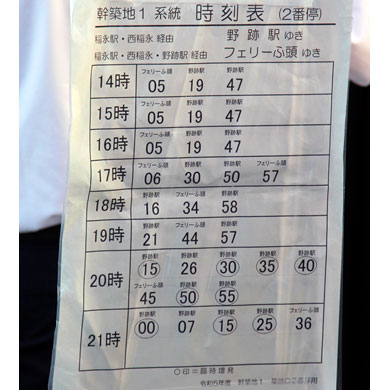 幹築地1 系統 時刻表 (2番停)
稲永駅・西稲永 経由 野跡駅 ゆき
稲永駅・西稲永・野跡駅 経由 フェリーふ頭 ゆき
フェリーふ頭 野跡駅 野跡駅
14時 05 19 47
フェリーふ頭 野跡駅 野跡駅
15時 05 19 47
フェリーふ頭 野跡駅 野跡駅
16時 05 19 47
フェリーふ頭 野跡駅 野跡駅 フェリーふ頭
17時 06 30 50 57
野跡駅 フェリーふ頭 野跡駅
18時 16 34 58
野跡駅 フェリーふ頭 野跡駅
19時 21 44 57
野跡駅 野跡駅 野跡駅 野跡駅 野跡駅
20時 15 26 30 35 40
フェリーふ頭 野跡駅 野跡駅
45 50 55
野跡駅 野跡駅 野跡駅 野跡駅 フェリーふ頭
21時 00 07 15 25 36
○印=臨時増発
令和5年度 幹築地1